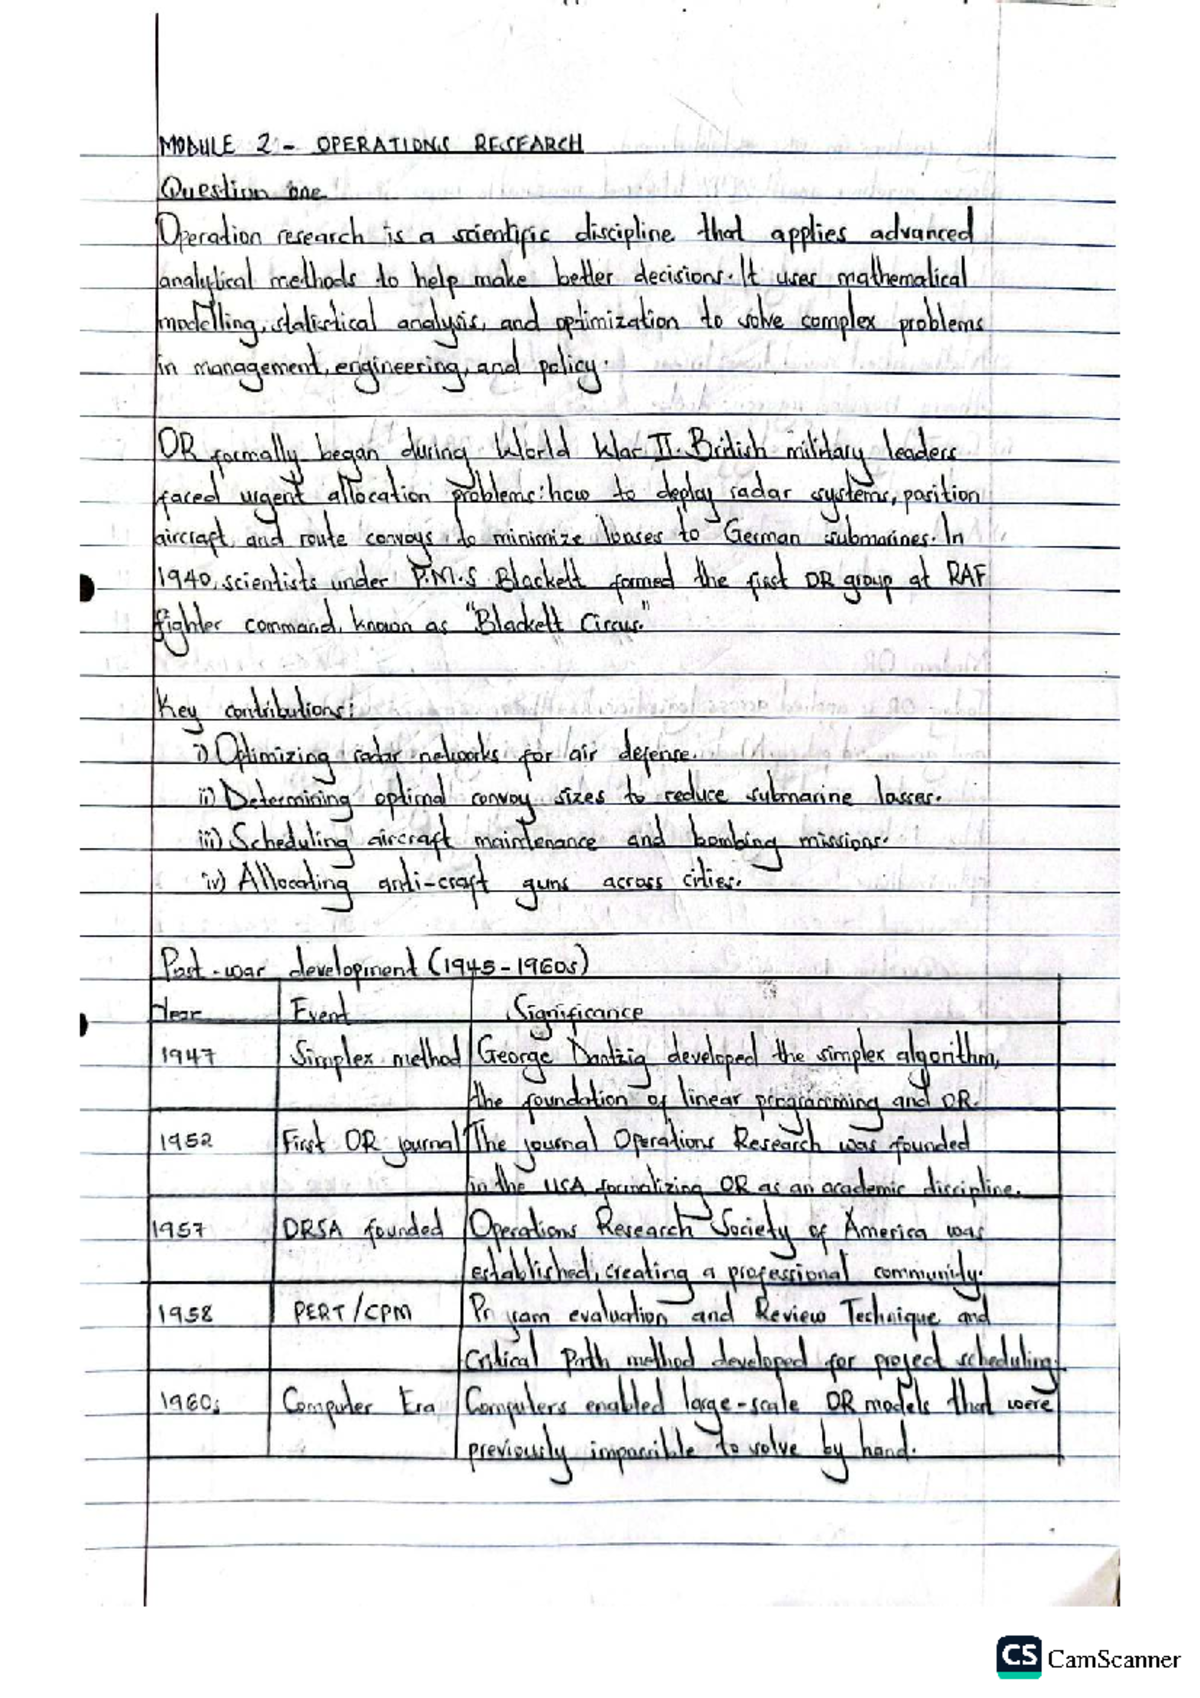 MODULE 2 - OPERATIONS RESEARCH
Question one
Operation research is a scientific discipline that applies advanced
analytical methods to help make better decisions. It uses mathematical
modelling, statistical analysis, and optimization to solve complex problems
in management, engineering, and policy.
OR formally began during World War II. British military leaders
faced urgent allocation problems: how to deploy radar systems, position
aircraft, and route convoys to minimize losses to German submarines. In
1940, scientists under P.M.S Blackett formed the first OR group at RAF
fighter command, known as "Blackett Circus."
Key contributions:
i) Optimizing radar networks for air defense.
ii) Determining optimal convoy sizes to reduce submarine losses.
iii) Scheduling aircraft maintenance and bombing missions.
iv) Allocating anti-craft guns across cities.
Post-war development (1945-1960s)
Year Event Significance
1947 Simplex method George Dantzig developed the simplex algorithm,
the foundation of linear programming and OR.
1952 First OR journal The journal Operations Research was founded
in the USA formalizing OR as an academic discipline.
1957 ORSA founded Operations Research Society of America was
established, creating a professional community.
1958 PERT/CPM evaluation and Review Technique and
Critical Path method developed for project scheduling.
1960s Computer Era Computers enabled large-scale OR models that were
previously impossible to solve by hand.
CS CamScanner